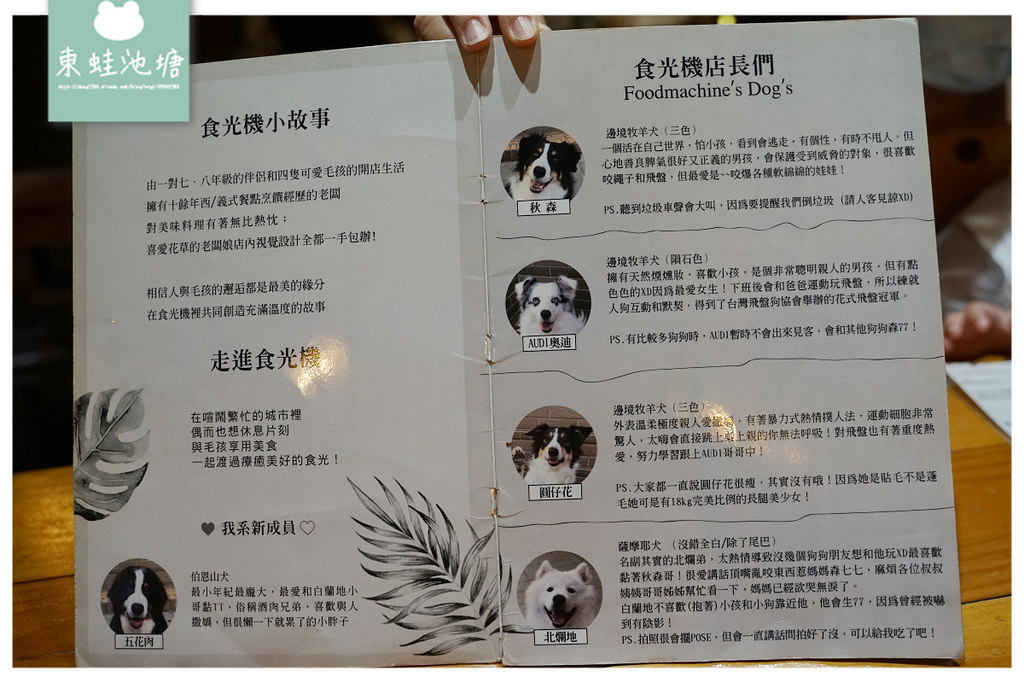 東蛙池塘
食光機小故事
由一對七、八年級的伴侶和四隻可愛毛孩的開店生活
擁有十餘年西/義式餐點烹饌經歷的老闆
對美味料理有著無比熱忱；
喜愛花草的老闆娘店內視覺設計全都一手包辦!
相信人與毛孩的邂逅都是最美的緣分
在食光機裡共同創造充滿溫度的故事
走進食光機
在喧鬧繁忙的城市裡
偶而也想休息片刻
與毛孩享用美食
一起渡過療癒美好的食光！
♥ 我系新成員 ♡
伯恩山犬
最小年紀最龐大，最愛和白蘭地小
哥黏TT，俗稱酒肉兄弟，喜歡與人
撒嬌，但很懶一下就累了的小胖子
五花肉
食光機店長們
Foodmachine's Dog's
邊境牧羊犬（三色）
一個活在自己世界，怕小孩，看到會逃走，有個性，有時不甩人。但
心地善良脾氣很好又正義的男孩，會保護受到威脅的對象，很喜歡
咬繩子和飛盤，但最愛是~~咬爆各種軟綿綿的娃娃！
PS.聽到垃圾車聲會大叫，因為要提醒我們倒垃圾（請人客見諒XD)
秋森
邊境牧羊犬（隕石色）
擁有天然煙燻妝，喜歡小孩，是個非常聰明親人的男孩，但有點
色色的XD因為最愛女生！下班後會和爸爸運動玩飛盤，所以練就
人狗互動和默契，得到了台灣飛盤狗協會舉辦的花式飛盤冠軍。
PS.有比較多狗狗時，AUDI暫時不會出來見客，會和其他狗狗森77！
AUDI奧迪
邊境牧羊犬（三色）
外表溫柔極度親人愛，有著暴力式熱情撲人法，運動細胞非常
驚人，太嗨會直接跳上桌上親的你無法呼吸！對飛盤也有著重度熱
愛，努力學習跟上AUDI哥哥中！
PS.大家都一直說圓仔花很瘦，其實沒有哦！因為她是貼毛不是蓬
毛她可是有18kg完美比例的長腿美少女！
圓仔花
薩摩耶犬 （沒錯全白/除了尾巴）
名副其實的北爛弟，太熱情導致沒幾個狗狗朋友想和他玩XD最喜歡
黏著秋森哥！很愛講話頂嘴亂咬東西惹媽媽森七七，麻煩各位叔叔
姨姨哥哥姊姊幫忙看一下，媽媽已經欲哭無淚了。
白蘭地不喜歡(抱著)小孩和小狗靠近他，他會生77，因為曾經被嚇
到有陰影！
PS.拍照很會擺POSE，但會一直講話問拍好了沒，可以給我吃了吧！
北爛地